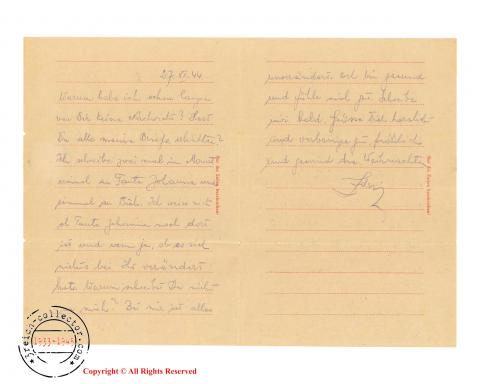 27.XI.44
Warum habe ich schon lange
von Dir keine Nachricht? Hast
Du alle meine Briefe erhalten?
Ich schreibe zwei mal im Monat
einmal an Tante Johanna und
einmal an Dich. Ich weiss nicht
ob Tante Johanna noch dort
ist und wenn ja, ob es sich
nichts bei Ihr verändert
hate. Warum schreibst Du nicht
mich? Bei mir ist alles
unverändert. Ich bin gesund
und fühle mich gut. Schreibe
mir bald. Grüsse Dich herzlich
und verbringe gut, fröhlich
und gesund die Weihnachten
Nur auf Zeilen beschreiben!
Nur auf Zeilen beschreiben!
3reich-collector.com
1933-1945
Copyright © All Rights Reserved